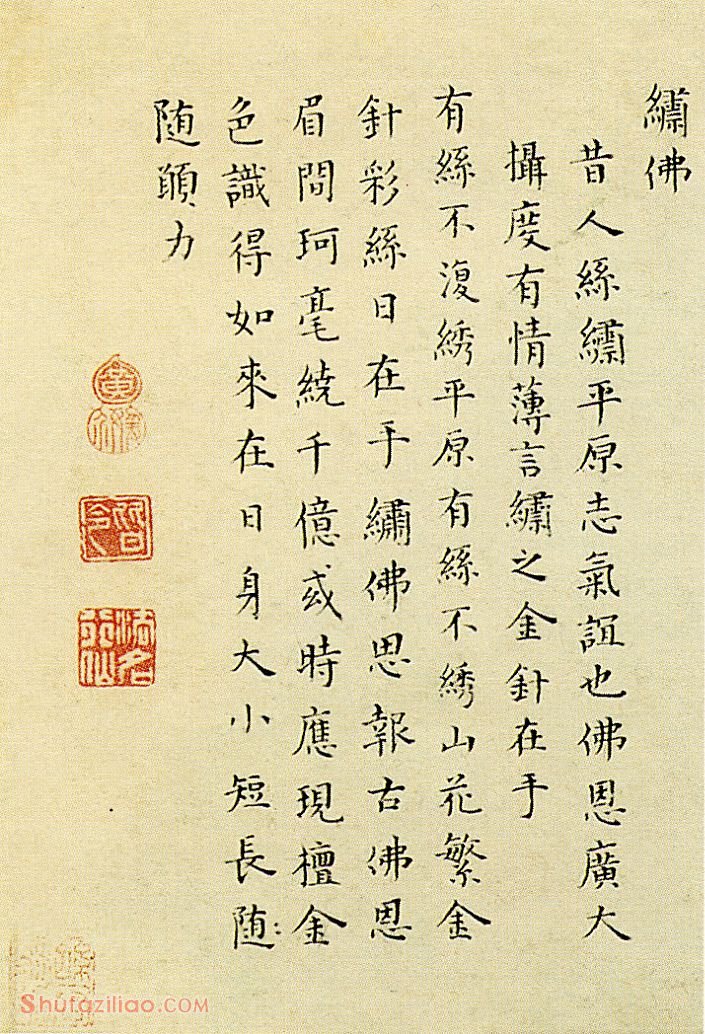 繡佛
昔人絲繡平原志氣誼也佛恩廣大
攝度有情薄言繡之金針在手
有絲不復綉平原有絲不綉山花繁金
針彩絲日在手繡佛思報古佛恩
眉間珂毫繞千億或時應現檀金
色識得如來在日身大小短長随:
随願力
Shufaziliao.COM